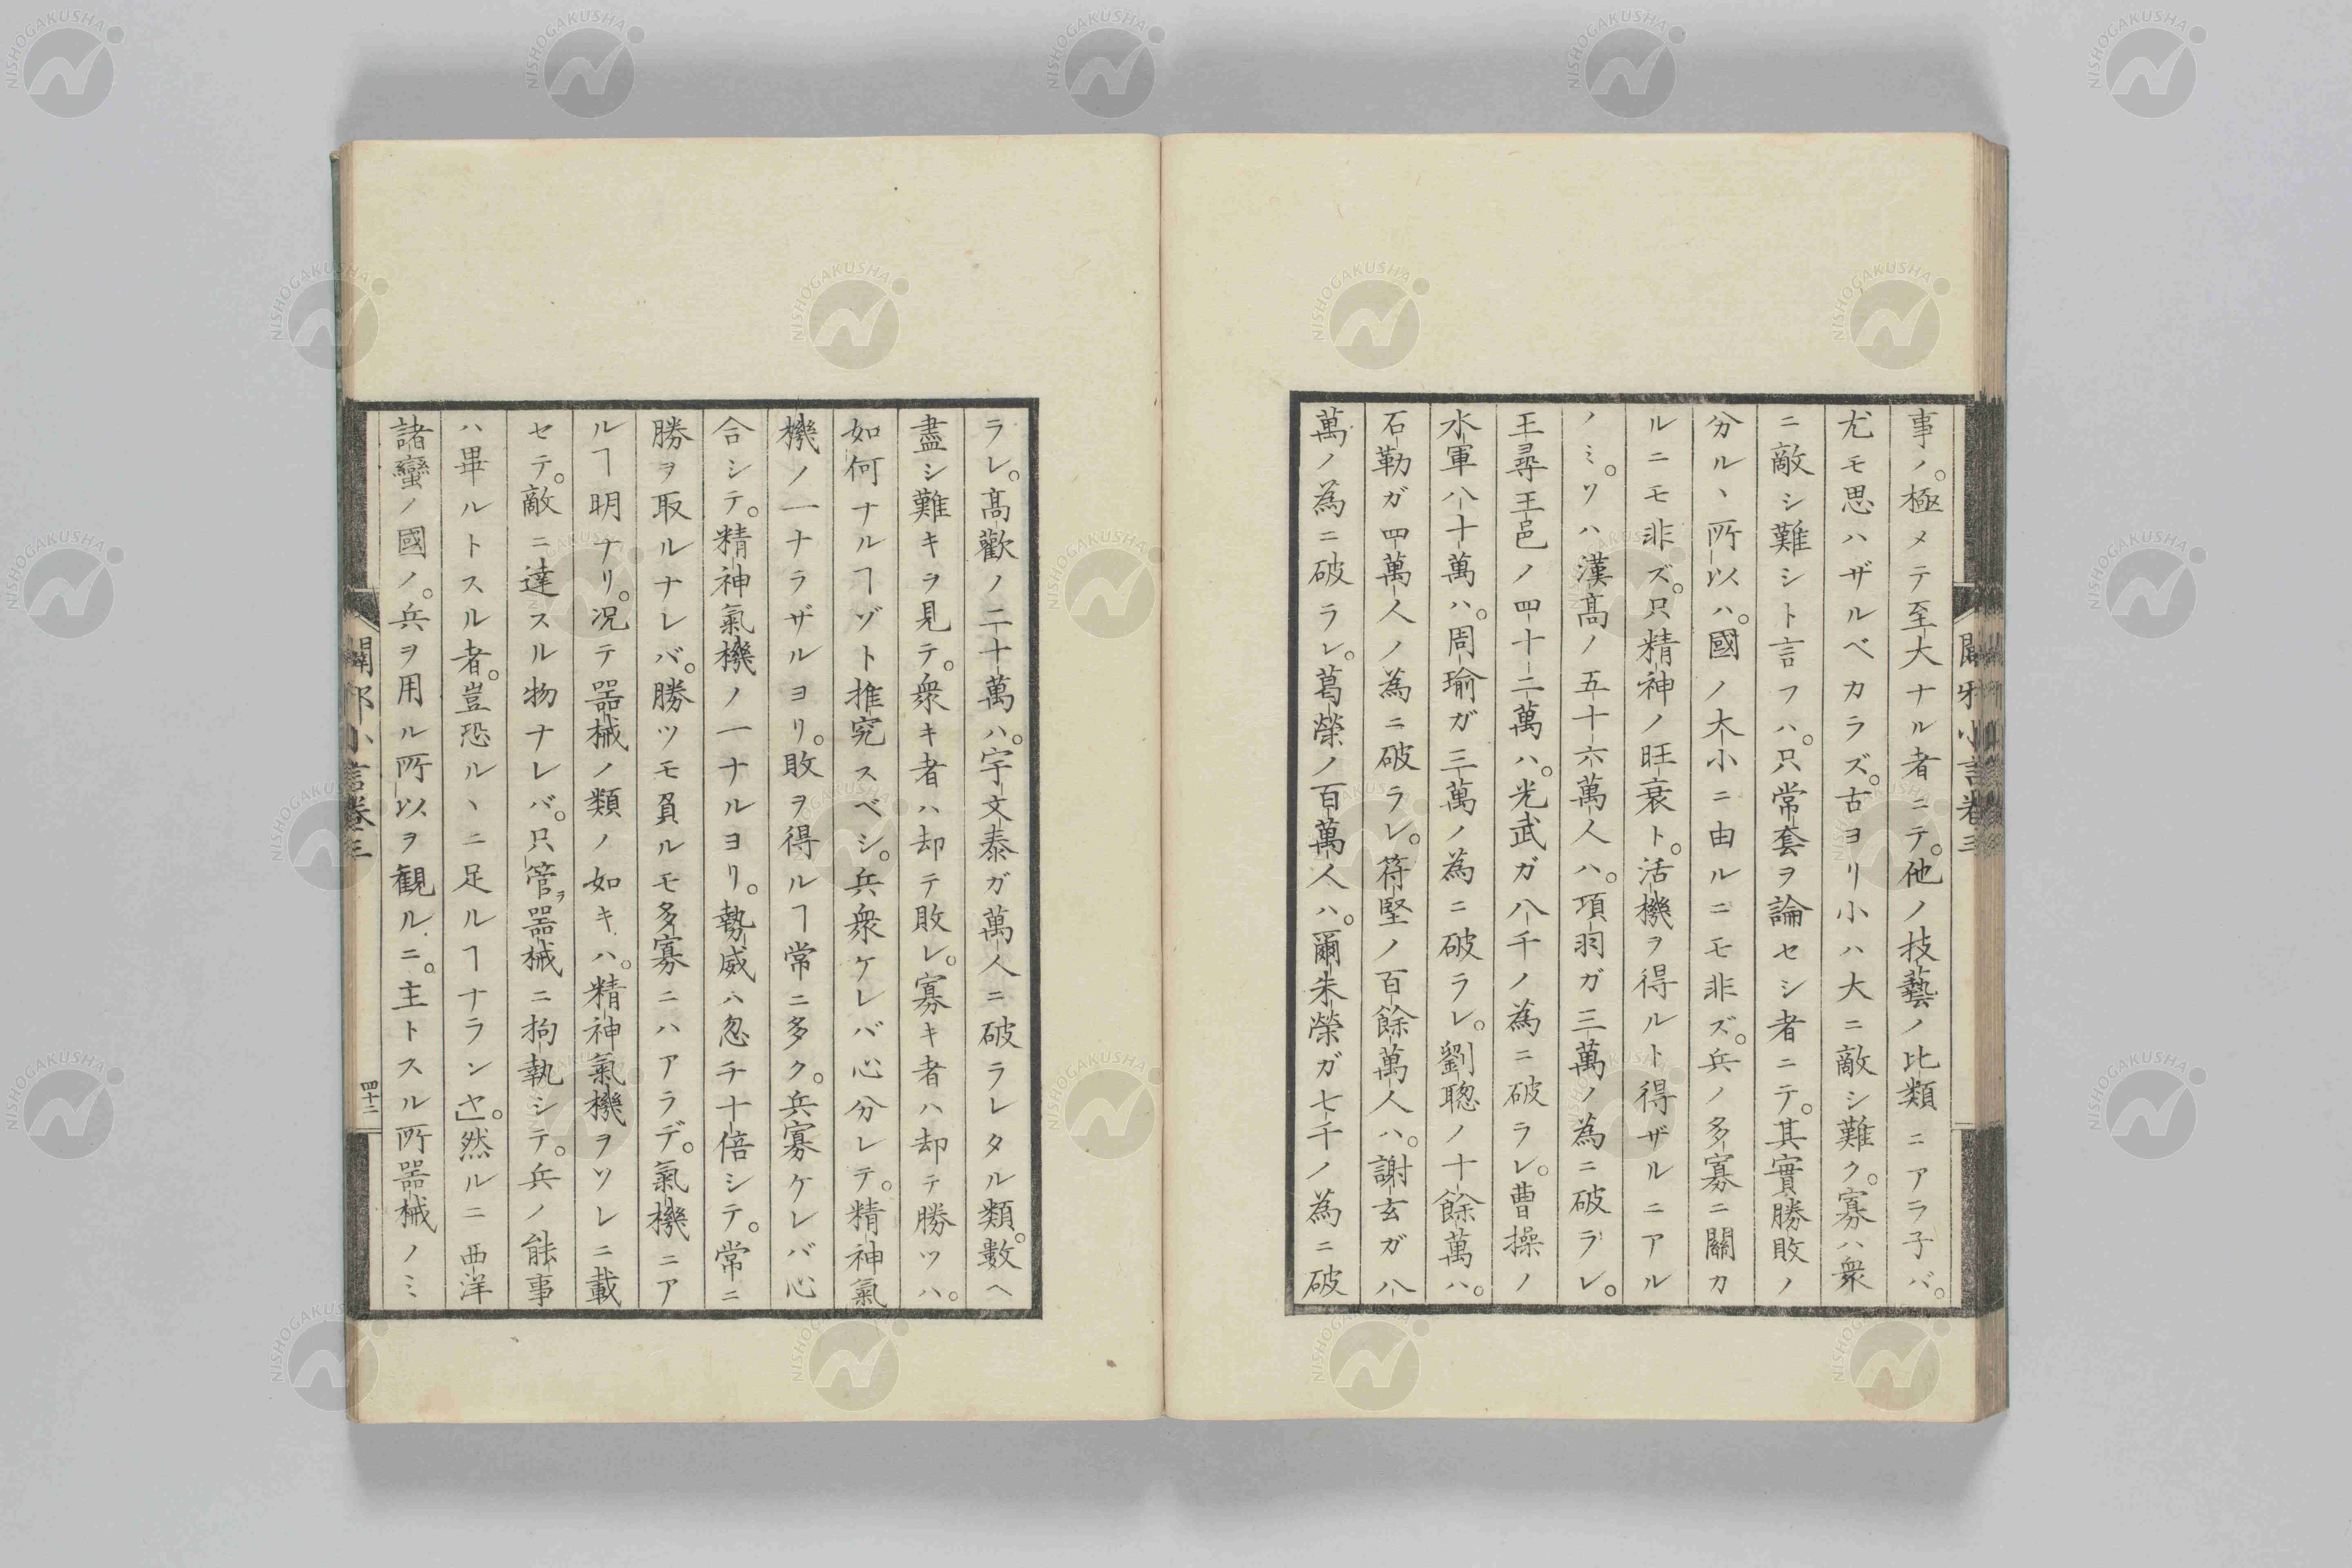 事ノ。極メテ至大ナル者ニテ。他ノ技藝ノ比類ニアラ子バ。
尤モ思ハザルベカラズ。古ヨリ小ハ大ニ敵シ難ク。寡ハ衆
ニ敵シ難シト言フハ。只常套ヲ論セシ者ニテ。其實勝敗ノ
分ル丶所以ハ。國ノ大小ニ由ルニモ非ズ。兵ノ多寡ニ關カ
ルニモ非ズ。只精神ノ旺衰ト。活機ヲ得ルト得ザルニアル
ノミ。ソハ漢髙ノ五十六萬人ハ。項羽ガ三萬ノ為ニ破ラレ。
王尋王邑ノ四十二萬ハ。光武ガ八千ノ為ニ破ラレ。曹操ノ
水軍八十萬ハ。周瑜ガ三萬ノ為ニ破ラレ。劉聰ノ十餘萬ハ。
石勒ガ四萬人ノ為ニ破ラレ。符堅ノ百餘萬人ハ。謝玄ガ八
萬ノ為ニ破ラレ。葛榮ノ百萬人ハ。爾朱榮ガ七千ノ為ニ破
ラレ。髙歡ノ二十萬ハ。宇文泰ガ萬人ニ破ラレタル類。數ヘ
盡シ難キヲ見テ。衆キ者ハ却テ敗レ。寡キ者ハ却テ勝ツハ。
如何ナルヿゾト推究スベシ。兵衆ケレバ心分レテ。精神氣
機ノ一ナラザルヨリ。敗ヲ得ルヿ常ニ多ク。兵寡ケレバ心
合シテ。精神氣機ノ一ナルヨリ。勢威ハ忽チ十倍シテ。常ニ
勝ヲ取ルナレバ。勝ツモ負ルモ多寡ニハアラデ。氣機ニア
ルヿ明ナリ。況テ器械ノ類ノ如キハ。精神氣機ヲソレニ載
セテ。敵ニ達スル物ナレバ。只管ヲ器械ニ拘執シテ。兵ノ能事
ハ畢ルトスル者。豈恐ル丶ニ足ルヿナランヤ」。然ルニ西洋
諸蠻ノ國ノ。兵ヲ用ル所以ヲ観ルニ。主トスル所器械ノミ
闢邪小言卷三
四十二
NISHOGAKUSHA